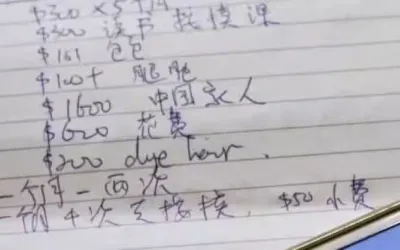 $300 x 5个月
$300 读书 按摸课
$161 包包
$100+ 肥肥
$1600 中国家人
$600 花费
$200 dye hair.
一个月一两次
一个月4次去按摸, $50 小费